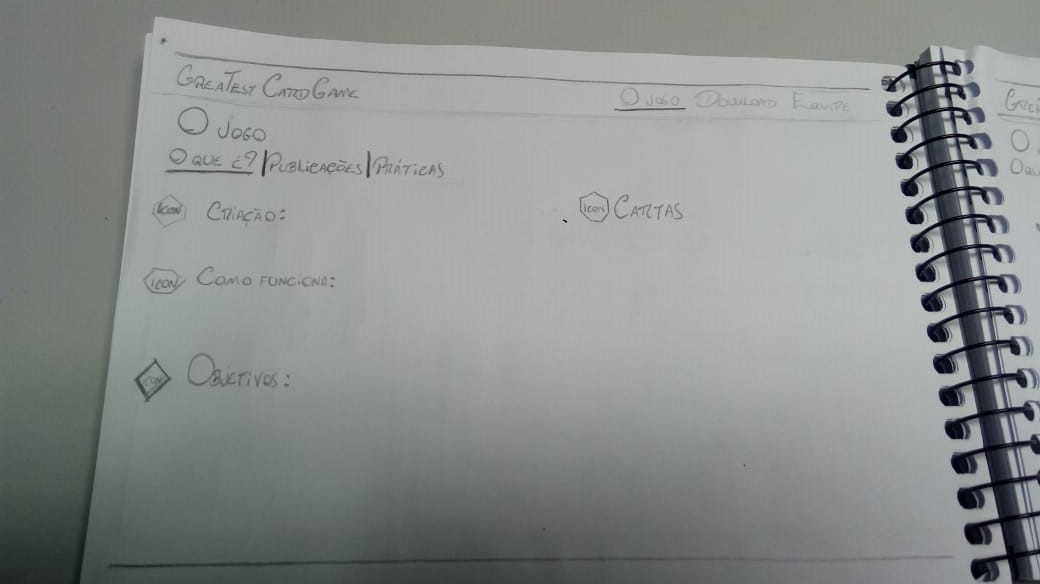 GREATEST CARD GAME
O JOGO DOWNLOAD EQUIPE
O JOGO
O QUE É? | PUBLICAÇÕES | PRÁTICAS
ICON CRIAÇÃO:
ICON CARTAS
ICON COMO FUNCIONA:
ICON OBJETIVOS: